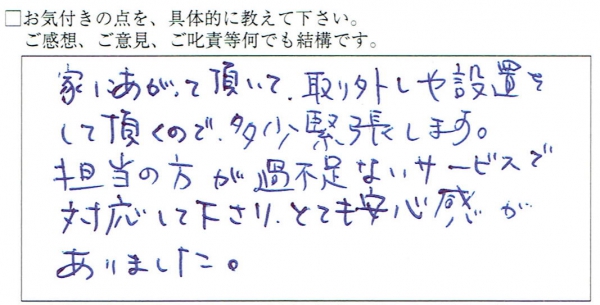 □お気付きの点を、具体的に教えて下さい。
ご感想、ご意見、ご叱責等何でも結構です。
家にあがって頂いて、取り外しや設置を
して頂くので、多少緊張します。
担当の方が過不足ないサービスで
対応して下さり、とても安心感が
ありました。